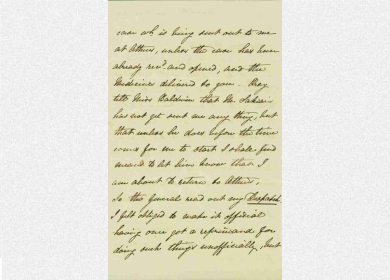 case wh is being sent out to me
at Athens, unless the case has been
already recd. and opened, and the
Medicines delivered to you. Pray
tell Miss Baldwin that Mr.
has not yet sent me any thing, but
that unless he does before the time
comes for me to start I shall find
means to let him know that I
am about to return to Athens.
So the General read out my Despatch.
I felt obliged to make it official
having once got a reprimand for
doing such things unofficially, but